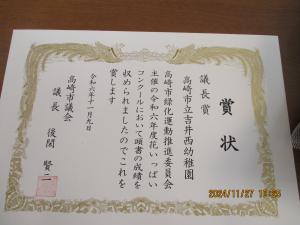 賞状
議長賞
高崎市立吉井西幼稚園
高崎市緑化運動推進委員会
主催の令和六年度花いっぱい
コンクールにおいて頭書の成績を
収められましたのでこれを
賞します
令和六年十一月九日
高崎市議会
議長 後閑 賢二
2024/11/27